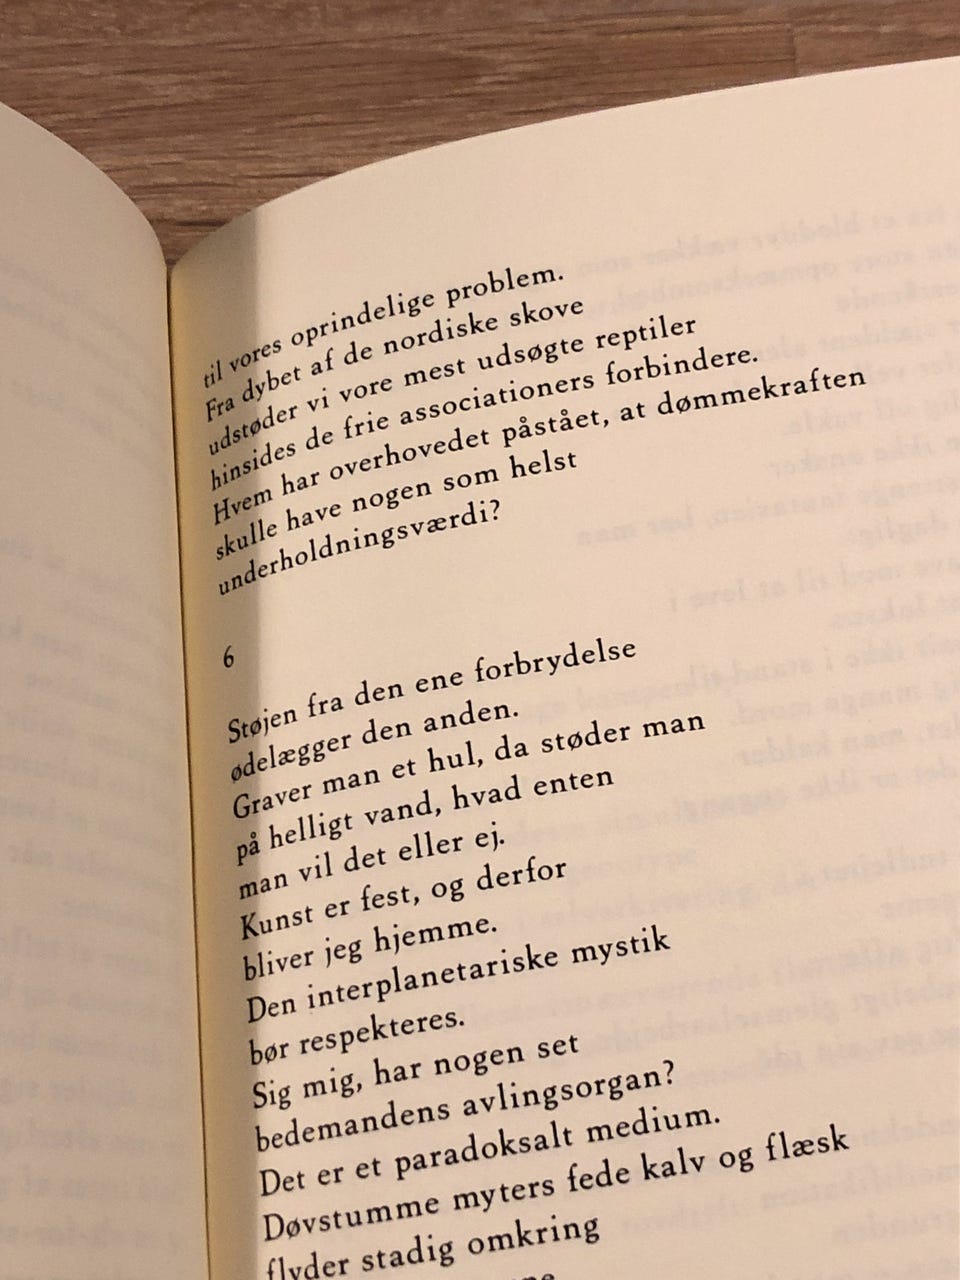 til vores oprindelige problem.
Fra dybet af de nordiske skove
udstøder vi vore mest udsøgte reptiler
hinsides de frie associationers forbindere.
Hvem har overhovedet påstået, at dømmekraften
skulle have nogen som helst
underholdningsværdi?
6
Støjen fra den ene forbrydelse
ødelægger den anden.
Graver man et hul, da støder man
på helligt vand, hvad enten
man vil det eller ej.
Kunst er fest, og derfor
bliver jeg hjemme.
Den interplanetariske mystik
bør respekteres.
Sig mig, har nogen set
bedemandens avlingsorgan?
Det er et paradoksalt medium.
Døvstumme myters fede kalv og flæsk
flyder stadig omkring